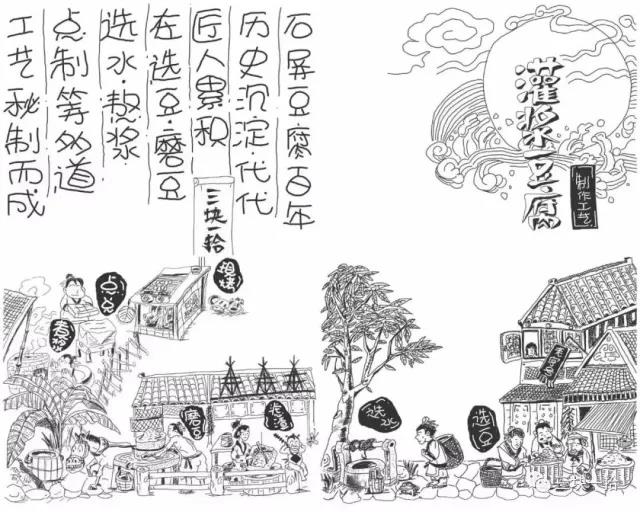 灌浆豆腐
制作工艺
石屏豆腐百年
历史沉淀·代代
匠人累积
左选豆·磨豆
选水·熬浆
点制等多道
工艺秘制而成
三块一拾
点兑
煮浆
磨豆
选水
选豆